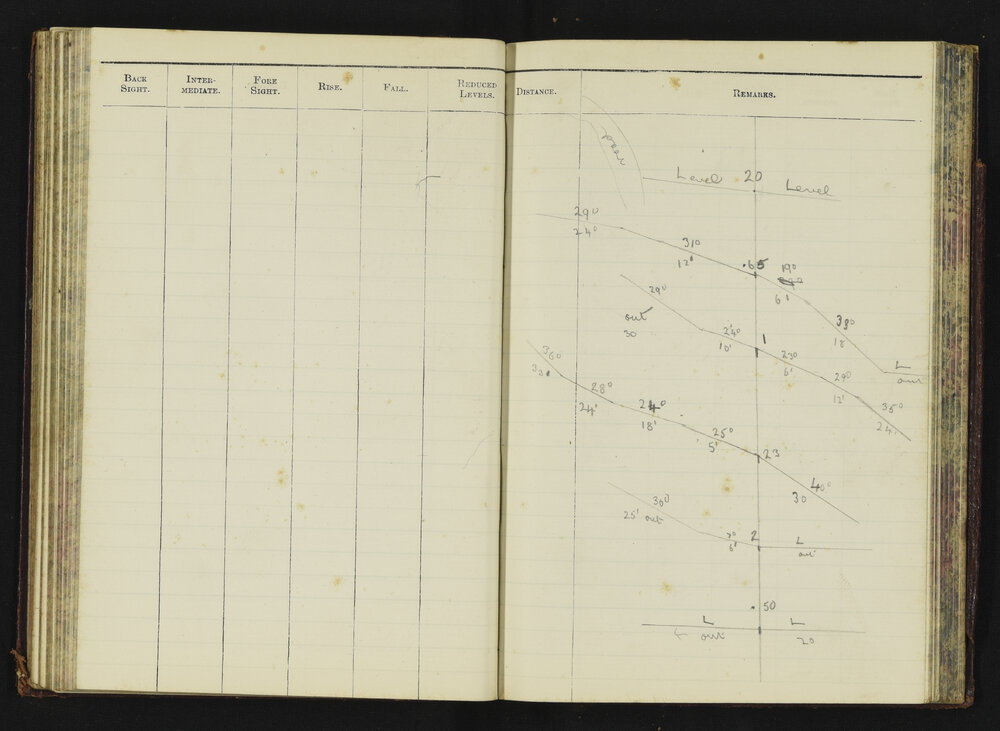 BACK SIGHT.
INTER-MEDIATE.
FORE SIGHT.
RISE.
FALL.
REDUCED LEVELS.
DISTANCE.
REMARKS.
Level 20 Level
29°
24°
31°
12'
.65
19°
6'
38°
18
L
out
29°
out
30
24°
10'
1
23°
6'
29°
12'
35°
24'
36°
28°
24'
24°
18'
25°
5'
23
40°
30
30°
25' out
2
L
out
.50
L
out
L
20